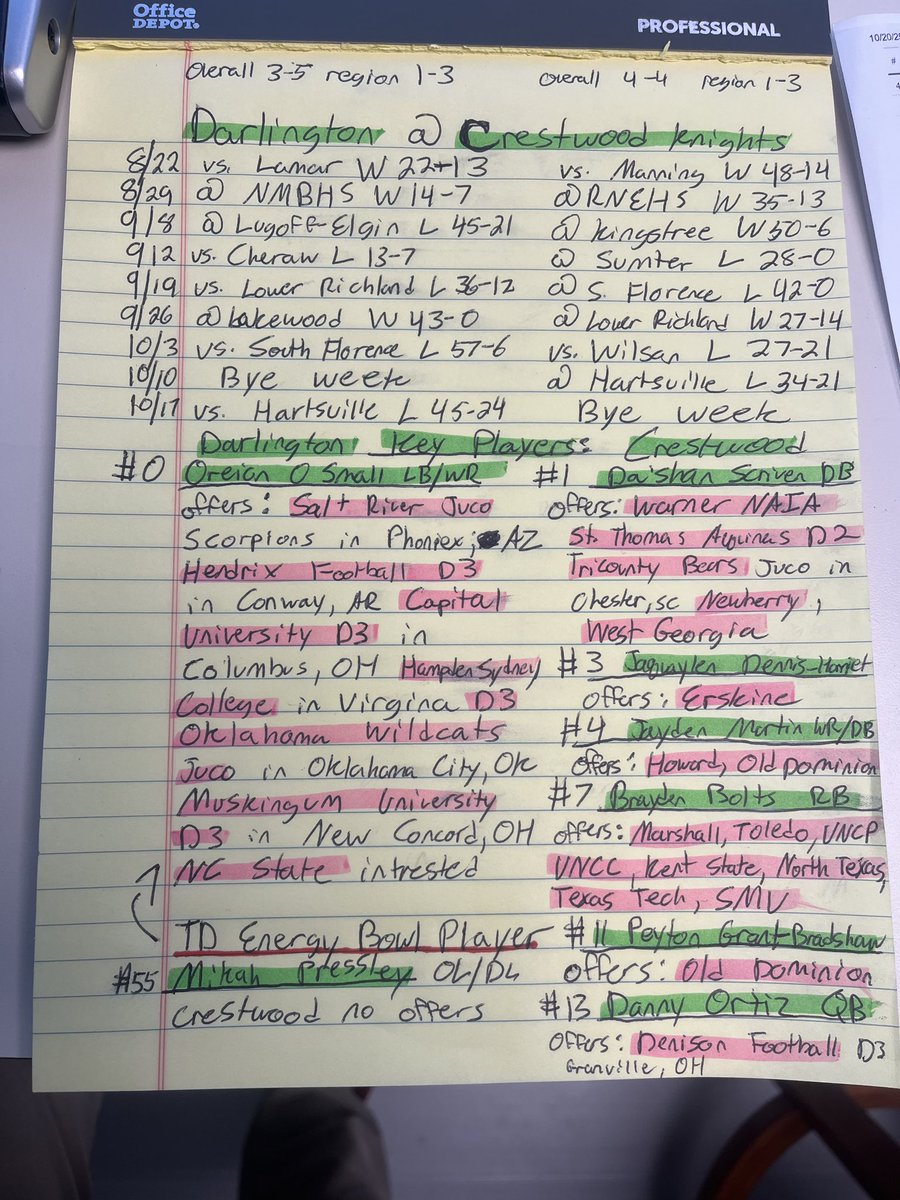 Office
DEPOT
PROFESSIONAL
10/20/2
#
4
Overall 3-5 region 1-3 Overall 4-4 region 1-3
Darlington @ Crestwood Knights
8/22 vs. Lamar W 22-13 vs. Manning W 48-14
8/29 @ NMBHS W 14-7 @ RNEHS W 35-13
9/8 @ Lugoff-Elgin L 45-21 @ Kingstree W 50-6
9/12 vs. Cheraw L 13-7 @ Sumter L 28-0
9/19 vs. Lower Richland L 36-12 @ S. Florence L 42-0
9/26 @ Lakewood W 43-0 @ Lower Richland W 27-14
10/3 vs. South Florence L 57-6 vs. Wilson L 27-21
10/10 Bye week @ Hartsville L 34-21
10/17 vs. Hartsville L 45-24 Bye week
Darlington Key Players: Crestwood
#0 Oreion O Small LB/WR #1 Da'Shan Scriven DB
offers: Salt River Juco offers: Warner NAIA
Scorpions in Phoniex, AZ St. Thomas Aquinas D2
Hendrix Football D3 Tricounty Bears Juco in
in Conway, AR Capital Chester, SC Newberry,
University D3 in West Georgia
Columbus, OH Hampden Sydney #3 Jaquaylen Dennis-Harriet
College in Virgina D3 offers: Erskine
Oklahoma Wildcats #4 Jayden Martin WR/DB
Juco in Oklahoma City, OK offers: Howard, Old Dominion
Muskingum University #7 Brayden Bolts RB
D3 in New Concord, OH offers: Marshall, Toledo, UNCP
NC State intrested UNCC, Kent State, North Texas,
Texas Tech, SMU
TD Energy Bowl Player #11 Peyton Grant-Bradshaw
#55 Mikah Pressley OL/DL offers: Old Dominion
Crestwood no offers #13 Danny Ortiz QB
offers: Denison Football D3
Granville, OH